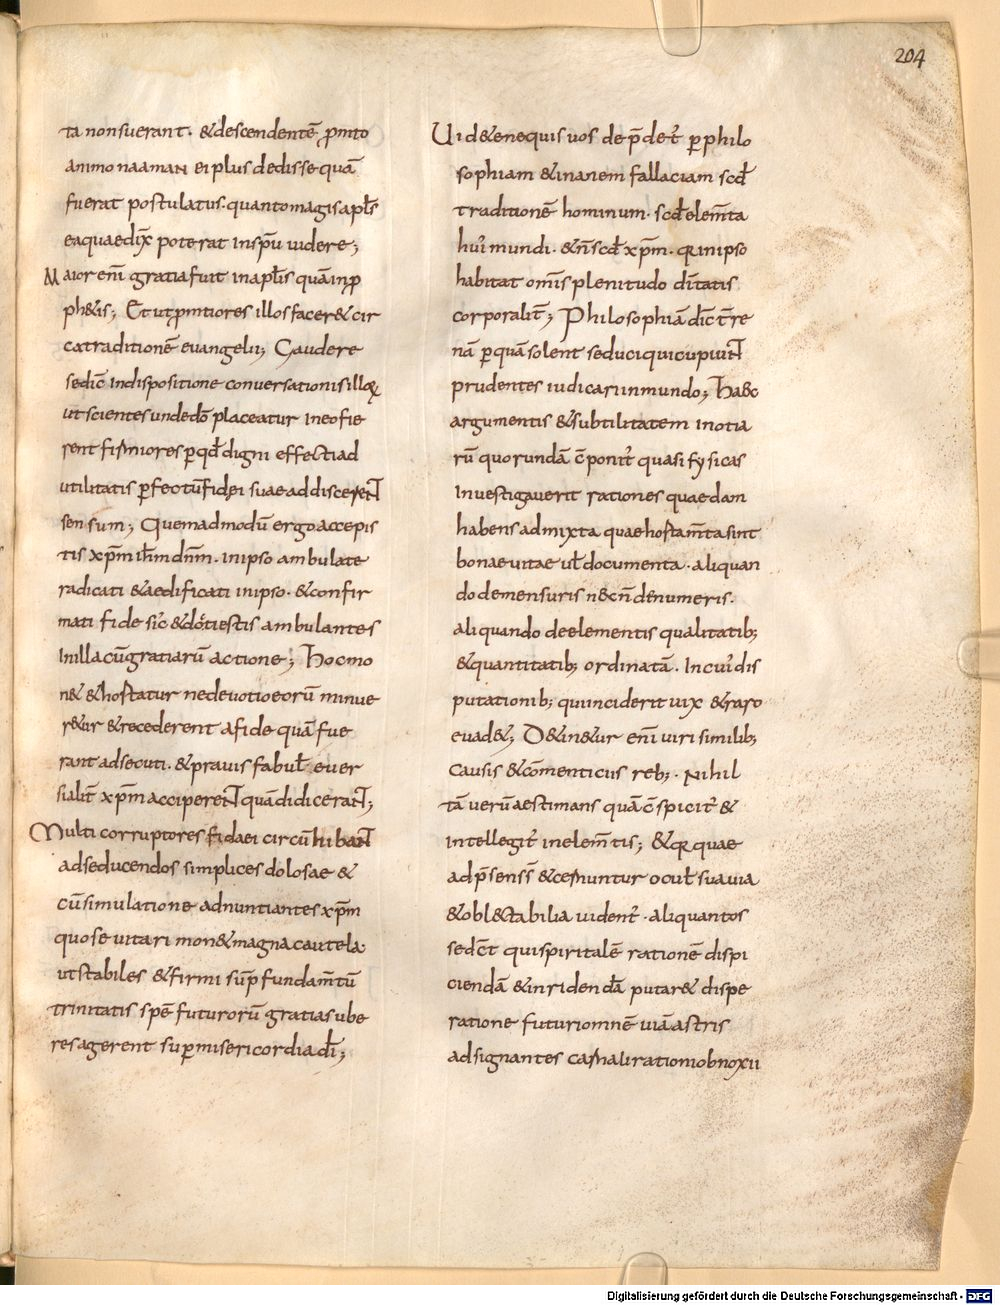 204
ta non fuerant. &descendentē ꝓmto
animo naaman ei plus dedisse quā
fuerat postulatus. quanto magis apl̄s
eaquae dix̄ poterat in sp̄u videre;
Maior enī gratia fuit in apl̄is quā in ꝓ
ph&is; Et ut ꝓmtiores illos facer& cir
ca traditionē evangelii; Gaudere
se dic̄ in dispositione conversationis illoꝝ
ut scientes unde dō placeatur in eo fie
rent firmiores ꝑ qd̄ digni effecti ad
utilitatis ꝑfectū fidei suae addiscerent
sensum; Quemadmodū ergo accepis
tis xp̄m ih̄m dn̄m. in ipso ambulate
radicati &aedificati in ipso. &confir
mati fide sic̄ &docti estis ambulantes
In illa cū gratiarū actione; Hoc mo
n& &hostatur ne devotio eorū minue
r&ur &recederent a fide quā fue
rant adsecuti. &pravis fabul̄ ever
si alit̄ xp̄m acciperent quā didicerant;
Multi corruptores fidaei circūhibant
ad seducendos simplices dolosae &
cū simulatione adnuntiantes xp̄m
quos evitari mon& magna cautela.
ut stabiles &firmi sup̄ fundam̄tū
trinitatis spē futurorū gratias ube
res agerent suꝑ misericordia dī;
Uid&e ne quis vos depd̄et̄ ꝑ philo
sophiam &inanem fallaciam scd̄
traditionē hominum. scd̄ elem̄ta
hui mundi. &n̄ scd̄ xp̄m. qr in ipso
habitat omīs plenitudo diīatis
corporalit̄; Philosophiā dic̄ t̄re
nā ꝑ quā solent seduci qui cupiunt
prudentes iudicari in mundo; Haec
argumentis &subtilitatem in otia
rū quorundā c̄ponit̄ quasi fysicas
Investigaverit rationes quaedam
habens admixta quae hostam̄ta sint
bonae vitae ul̄ documenta. aliquan
do de mensuris necn̄ de numeris.
aliquando de elementis qualitatib;
&quantitatib; ordinatā. In cui dis
putationib; qui inciderit vix &raro
evad&; D&in&ur enī viri similib;
causis &cōmenticiis reb;. Nihil
tā verū aestimans quā c̄spicit̄ &
intellegit̄ in elem̄tis; &qr quae
ad p̄sens &cernuntur ocul̄ suavia
&oblectabilia vident̄. aliquantos
seduc̄t qui spiritalē rationē dispi
ciendā &inridendā putar& dispe
ratione futuri omnē viā astris
adsignantes carnali rationi obnoxii
Digitalisierung gefördert durch die Deutsche Forschungsgemeinschaft - DFG